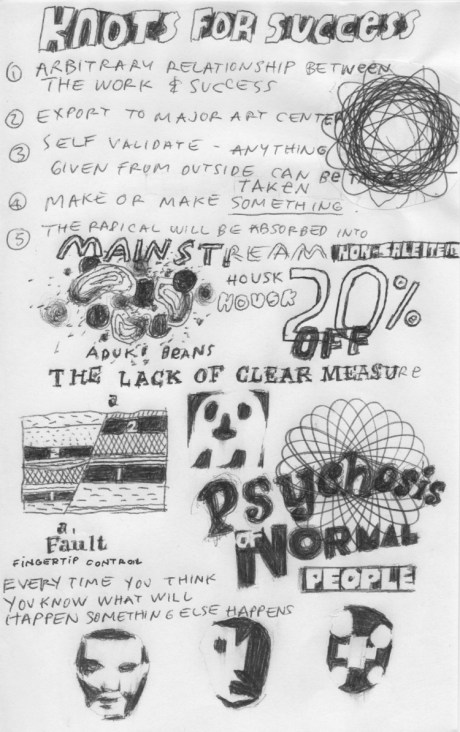 KNOTS FOR SUCCESS
① ARBITRARY RELATIONSHIP BETWEEN
THE WORK & SUCCESS
② EXPORT TO MAJOR ART CENTER
③ SELF VALIDATE - ANYTHING
GIVEN FROM OUTSIDE CAN BE
TAKEN
④ MAKE OR MAKE SOMETHING
⑤ THE RADICAL WILL BE ABSORBED INTO
MAINSTREAM NON-SALE ITEM
HOUSK
HOUSK
20%
OFF
ADUKI BEANS
THE LACK OF CLEAR MEASURE
a
2
3
1
1
a,
Fault
FINGERTIP CONTROL
Psychosis
OF NORMAL
PEOPLE
EVERY TIME YOU THINK
YOU KNOW WHAT WILL
HAPPEN SOMETHING ELSE HAPPENS